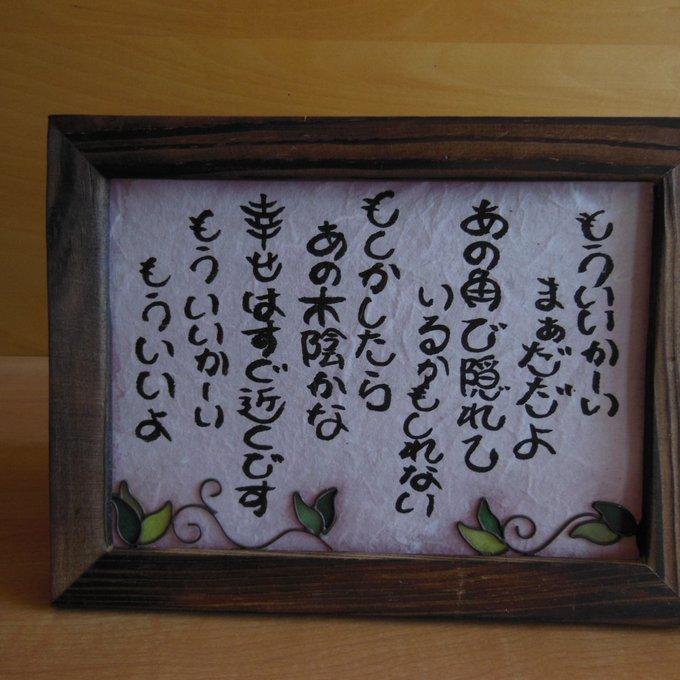 もういいかーい
まぁだだよ
あの角で隠れて
いるかもしれない
もしかしたら
あの木陰かな
幸せはすぐ近くです
もういいかーい
もういいよ